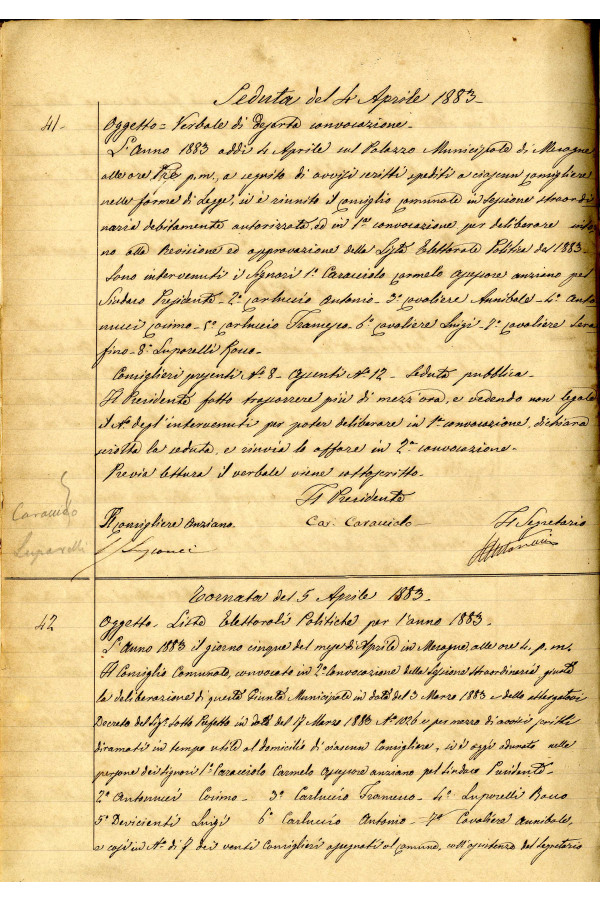 Seduta del 4 Aprile 1883-
41-
Oggetto = Verbale di deserta convocazione-
L'Anno 1883 addì 4 Aprile sul Palazzo Municipale di Mesagne
alle ore tre p.m., a seguito di avvisi scritti spediti a ciascun Consigliere
nelle forme di legge, si è riunito il Consiglio Comunale in sessione straordi
naria debitamente autorizzata, ed in 1ª convocazione per deliberare intor
no alla Revisione ed approvazione della Lista Elettorale Politica del 1883-
Sono intervenuti i Signori 1º Caracciolo Carmelo assessore anziano pel
Sindaco Presidente- 2º Carluccio Antonio- 3º Cavaliere Annibale- 4º Anto
nucci Cosimo- 5º Carluccio Francesco- 6º Cavaliere Luigi- 7º Cavaliere Sera
fino- 8º Luparelli Rocco-
Consiglieri presenti Nº 8- assenti Nº 12- Seduta pubblica-
Il Presidente fatto trascorrere più di mezz'ora, e vedendo non legale
il Nº degl'intervenuti per poter deliberare in 1ª convocazione, dichiara
sciolta la seduta, e rinvia le affare in 2ª convocazione-
Previa lettura il verbale viene sottoscritto-
Il Presidente
Caracciolo
Luparelli
Il Consigliere Anziano
Car. Caracciolo-
Il Segretario
Tornata del 5 Aprile 1883-
42
Oggetto- Liste Elettorali Politiche per l'anno 1883-
L'Anno 1883 il giorno cinque del mese di Aprile in Mesagne, alle ore 4. p.m.
Il Consiglio Comunale, convocato in 2ª Convocazione della sessione straordinaria giusta
la deliberazione di questa Giunta Municipale in data del 3 Marzo 1883 e dello
Decreto del Sigr Sotto Prefetto in data del 17 Marzo 1883 Nº 1026 e per mezzo di avvisi scritti
diramati in tempo utile al domicilio di ciascun Consigliere, si è oggi adunato nelle
persone dei signori 1º Caracciolo Carmelo assessore anziano pel Sindaco Presidente-
2º Antonucci Cosimo- 3º Carluccio Francesco- 4º Luparelli Rocco
5º Devicienti Luigi 6º Carluccio Antonio- 7º Cavaliere Annibale,
e così in Nº di 7 dei venti Consiglieri assegnati al Comune, coll'assistenza del Segretario